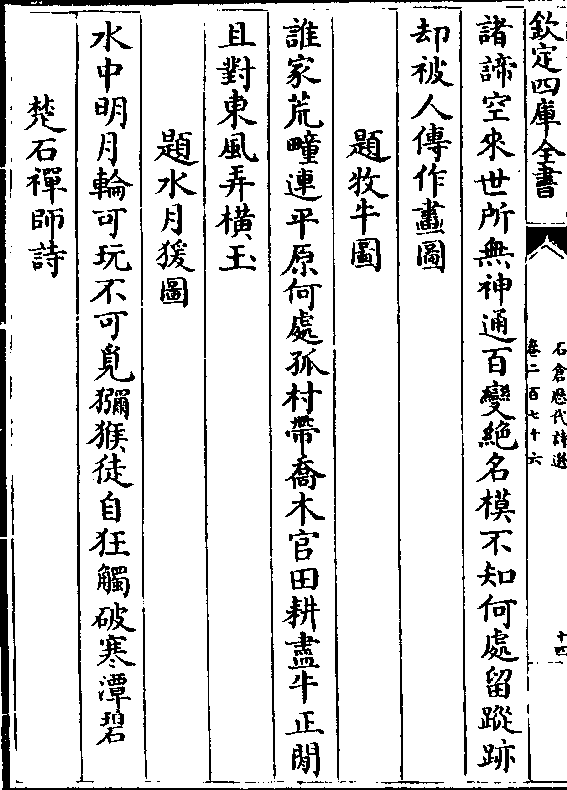 欽定四庫全書
石倉歷代詩選
卷二百七十六
十四
諸諦空來世所無神通百變絶名模不知何處留蹤跡
却被人傳作畫圖
題牧牛圖
誰家荒疃連平原何處孤村帶喬木官田耕盡牛正閒
且對東風弄橫玉
題水月猨圖
水中明月輪可玩不可覓獼猴徒自狂觸破寒潭碧
楚石禪師詩